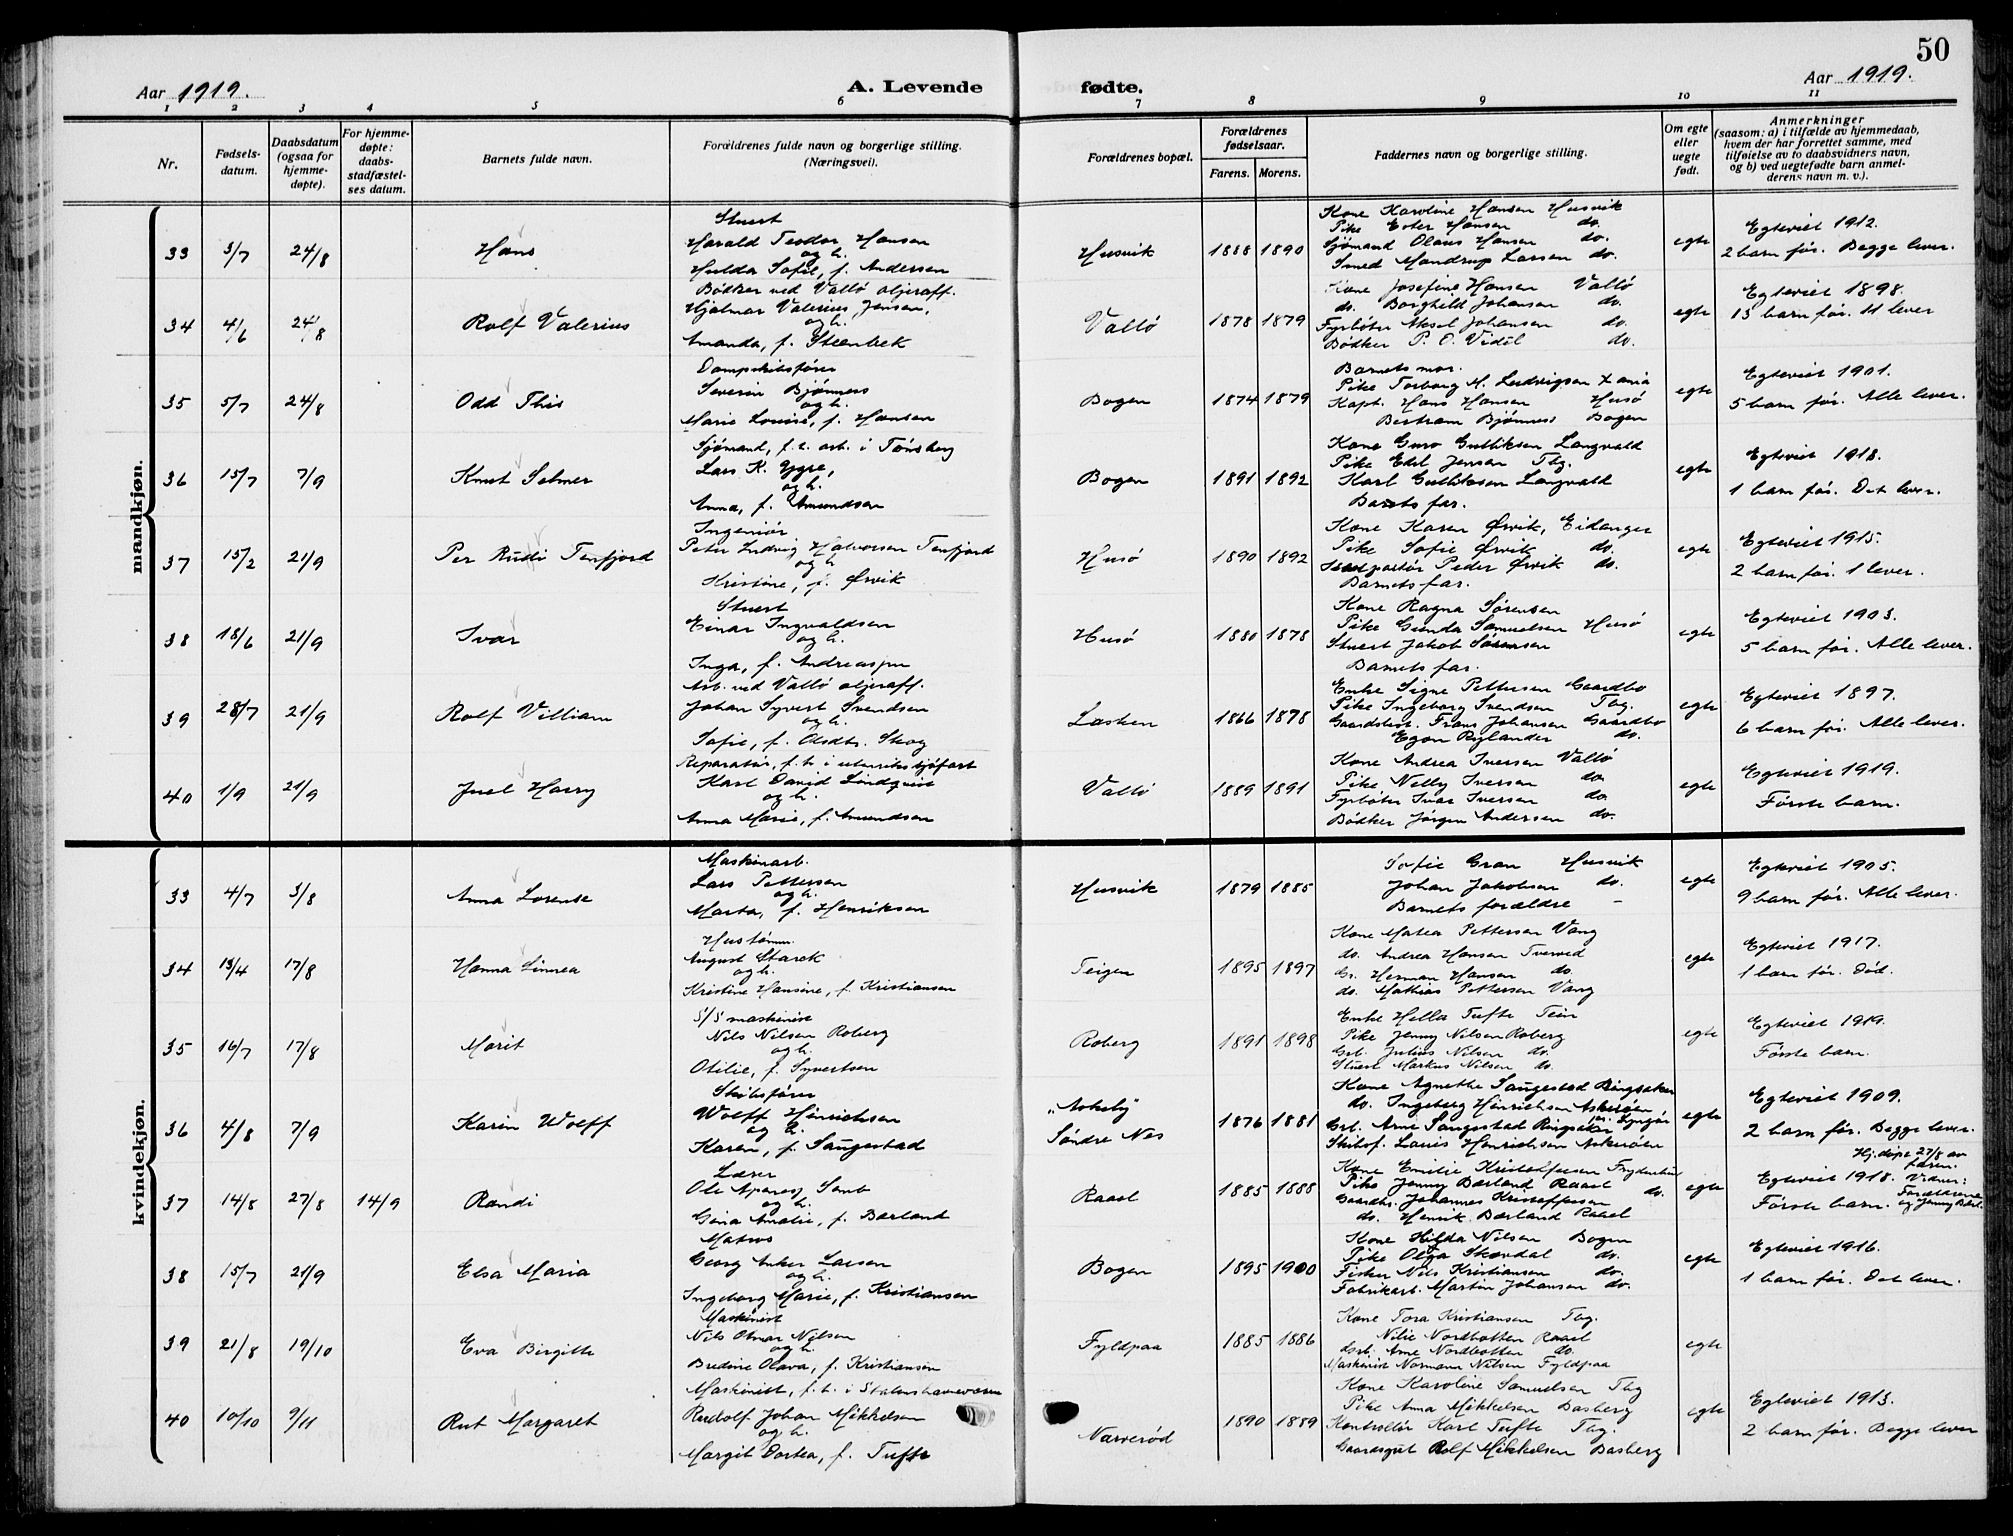 50
Aar 1919.
A. Levende
fødte.
Aar 1919.
1 2 3 4 5 6 7 8 9 10 11
Nr.
Fødsels-
datum.
Daabsdatum
(ogsaa for
hjemme-
døpte).
For hjemme-
døpte:
daabs-
stadfæstel-
ses datum.
Barnets fulde navn.
Forældrenes fulde navn og borgerlige stilling.
(Næringsvei).
Forældrenes bopæl.
Forældrenes
fødselsaar.
Farens. Morens.
Faddernes navn og borgerlige stilling.
Om egte
eller
uegte
født.
Anmerkninger
(saasom: a) i tilfælde av hjemmedaab,
hvem der har forrettet samme, med
tilføielse av to daabsvidners navn,
og b) ved uegtefødte barn anmel-
derens navn m. v.).
mandkjøn.
33 3/7 24/8 Hans
Stuert
Harald Teodor Hansen
og h.
Hulda Sofie, f. Andersen
Husvik 1888 1890
Kone Karoline Hansen Husvik
Pike Ester Hansen do.
Sjømand Olaus Hansen do.
Smed Mandrup Larsen do.
egte
Egteviet 1912.
2 barn før. Begge lever.
34 4/6 24/8 Rolf Valerius
Bødker ved Vallø oljeraff.
Hjalmar Valerius Jensen,
og h.
Amanda, f. Steenbek
Vallø 1878 1879
Kone Josefine Hansen Vallø
do. Borghild Johansen do.
Fyrbøter Aksel Johansen do.
Bødker P. O. Videl do.
egte
Egteviet 1898.
13 barn før. 11 lever
35 5/7 24/8 Odd This
Dampskibsfører
Severin Bjønness
og h.
Marie Louise, f. Hansen
Bogen 1874 1879
Barnets mor.
Pike Torborg M. Ludvigsen X ania
Kapt. Hans Hansen Husø
Bertram Bjønness Bogen
egte
Egteviet 1901.
5 barn før. Alle lever.
36 15/7 7/9 Knut Selmer
Sjømand, f. t. arb. i Tønsberg
Lars K. Ygre,
og h.
Anna, f. Amundsen
Bogen 1891 1892
Kone Guro Gulliksen Langvald
Pike Edel Jensen Tbg.
Karl Gulliksen Langvald
Barnets far.
egte
Egteviet 1918.
1 barn før. Det lever.
37 15/2 21/9 Per Rudi Tenfjord
Ingeniør
Peter Ludvig Halvorsen Tenfjord
og h.
Kristine, f. Ørvik
Husø 1890 1892
Kone Karen Ørvik, Eidanger
Pike Sofie Ørvik do.
Peder Ørvik do.
Barnets far.
egte
Egteviet 1915.
2 barn før. 1 lever.
38 18/6 21/9 Ivar
Stuert
Einar Ingvaldsen
og h.
Inga, f. Andreassen
Husø 1880 1878
Kone Ragna Sørensen
Pike Gunda Samuelsen Husø
Stuert Jakob Sørensen
Barnets far.
egte
Egteviet 1903.
5 barn før. Alle lever.
39 28/7 21/9 Rolf Villiam
Arb. ved Vallø oljeraff.
Johan Syvert Svendsen
og h.
Sofie, f. Olsdtr. Skog
Løsken 1866 1878
Enke Signe Pettersen Gaardbo
Pike Ingeborg Svendsen Tbg.
Gaardsbest. Frans Johansen Gaardbo
Egon Rylander do.
egte
Egteviet 1897.
6 barn før. Alle lever.
40 1/9 21/9 Juel Harry
Reparatør, f. t. i utenriks sjøfart
Karl David Lindqvist
og h.
Anna Marie, f. Amundsen
Vallø 1889 1891
Kone Andrea Iversen Vallø
Pike Nelly Iversen do.
Fyrbøter Ivar Iversen do.
Bødker Jørgen Andersen do.
egte
Egteviet 1919.
Første barn.
kvindekjøn.
33 4/7 3/8 Anna Lorentse
Maskinarb.
Lars Pettersen
og h.
Marta, f. Henriksen
Husvik 1879 1885
Sofie Gran Husvik
Johan Jakobsen do.
Barnets forældre –
egte
Egteviet 1905.
9 barn før. Alle lever.
34 13/4 17/8 Hanna Linnea
Hustømm.
August Starck
og h.
Kristine Hansine, f. Kristiansen
Teigen 1895 1897
Kone Matea Pettersen Vang
do. Andrea Hansen Tverved
Gr. Herman Hansen do.
do. Mathias Pettersen Vang
egte
Egteviet 1917.
1 barn før. Død.
35 16/7 17/8 Marit
S/S maskinist
Nils Nilsen Roberg
og h.
Otilie, f. Syvertsen
Roberg 1891 1898
Enke Hella Tufte Teie
Pike Jenny Nilsen Roberg
Grl. Julius Nilsen do.
Stuert Markus Nilsen do.
egte
Egteviet 1919.
Første barn.
36 4/8 7/9 Karin Wolff
Skibsfører
Wolff Hinrichsen
og h.
Karen, f. Saugestad
"Askely"
Søndre Nes 1876 1881
Kone Agnethe Saugestad Ringsaker
do. Ingeborg Hinrichsen Askerøen
Grl. Arne Saugestad Ringsaker
Skibsf. Lauis Henrichsen Askerøen
egte
Egteviet 1909.
2 barn før. Begge lever.
37 14/8 27/8 14/9 Randi
Lærer
Ole Somb
og h.
Gina Amalie, f. Bærland
Raael 1885 1888
Kone Emilie Kristoffersen Frydenlund
Pike Jenny Bærland Raael do.
Gaardbr. Johannes Kristoffersen
do. Henrik Bærland Raael
egte
Hj. døpt 27/8 av
faren.
Egteviet 1918. Vidner:
Første barn. Forældrene
og Jenny Bærl.
38 15/7 21/9 Elsa Maria
Matros
Georg Anker Larsen
og h.
Ingeborg Marie, f. Kristiansen
Bogen 1895 1900
Kone Hilda Nilsen Bogen
Pike Olga Skovdal do.
Fisker Nils Kristiansen do.
Fabrikarb. Martin Johansen do.
egte
Egteviet 1916.
1 barn før. Det lever.
39 21/8 19/10 Eva Birgitte
Maskinist
Nils Otmar Nilsen
og h.
Bredine Olava, f. Kristiansen
Fyldpaa 1885 1886
Kone Tora Kristiansen Tbg.
Nilie Nordbotten Raael
Grl. Arne Nordbotten do.
Maskinist Normann Nilsen Fyldpaa
egte
40 10/10 9/11 Rut Margaret
Maskinist, f. t. i Statens havnevæsen
Rudolf Johan Mikkelsen
og h.
Margit Dortea, f. Tufte
Narverød 1890 1889
Kone Karoline Samuelsen Tbg
Pike Anna Mikkelsen Basberg
Kontrollør Karl Tufte Tbg.
Gaardsgut Rolf Mikkelsen Basberg
egte
Egteviet 1913.
2 barn før. Begge lever